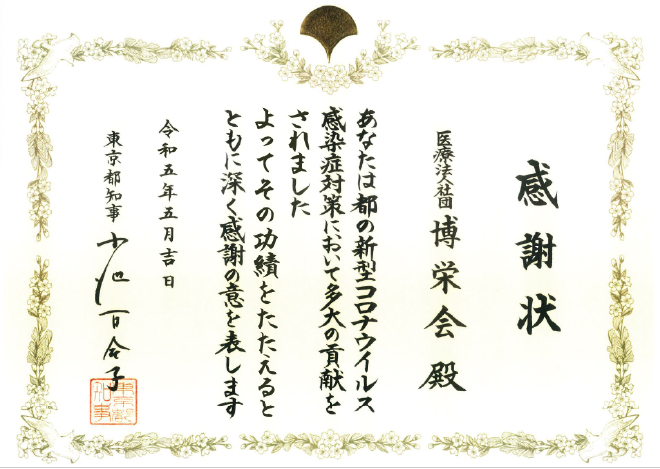 感謝状
医療法人社団 博栄会 殿
あなたは都の新型コロナウイルス
感染症対策において多大の貢献を
されました
よってその功績をたたえると
ともに深く感謝の意を表します
令和五年五月吉日
東京都知事 小池百合子
東京都知事